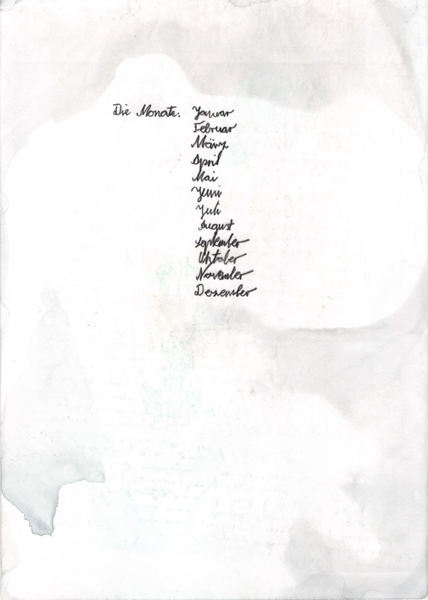 Die Monate: Januar
Februar
März
April
Mai
Juni
Juli
August
September
Oktober
November
Dezember